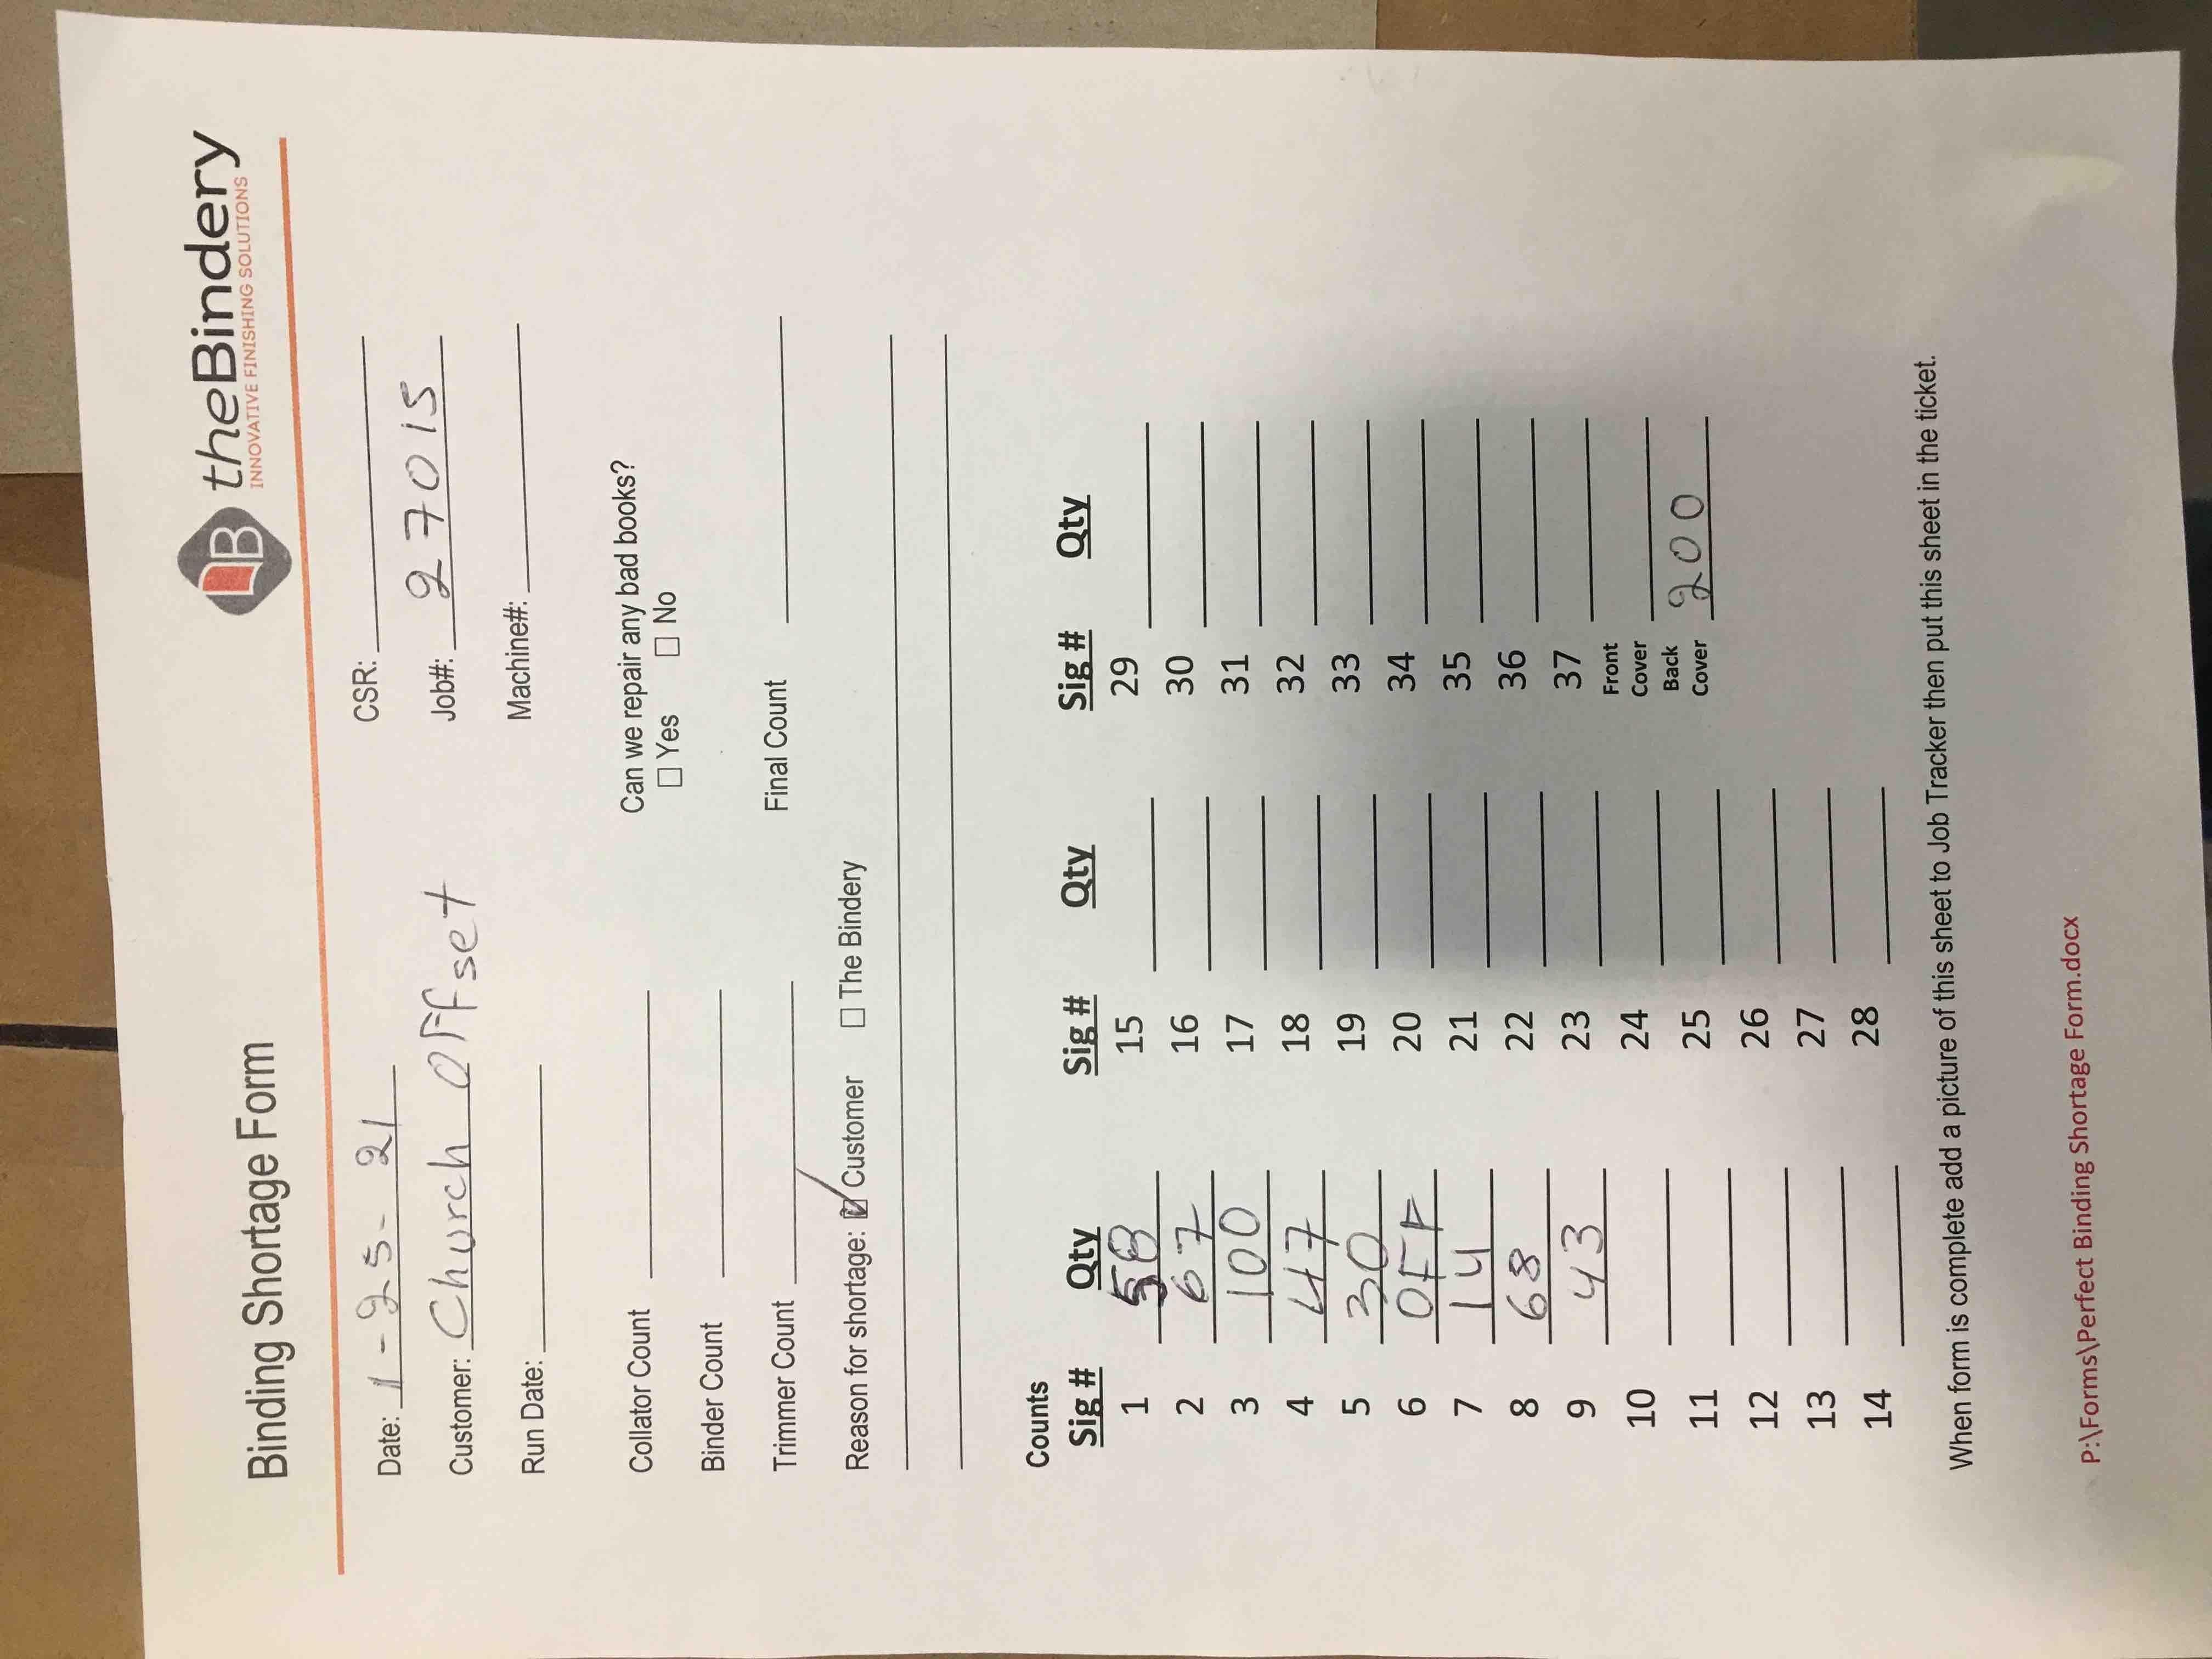 Binding Shortage Form
theBindery
INNOVATIVE FINISHING SOLUTIONS
Date: 1-25-21 CSR:
Customer: Church Offset Job#: 27015
Run Date: Machine#:
Collator Count Can we repair any bad books?
☐ Yes ☐ No
Binder Count
Trimmer Count Final Count
Reason for shortage: ☑ Customer ☐ The Bindery
Counts
Sig # Qty Sig # Qty Sig # Qty
1 58 15 29
2 67 16 30
3 100 17 31
4 47 18 32
5 30 19 33
6 OFF 20 34
7 14 21 35
8 68 22 36
9 43 23 37
10 24 Front Cover
11 25 Back Cover 200
12 26
13 27
14 28
When form is complete add a picture of this sheet to Job Tracker then put this sheet in the ticket.
P:\Forms\Perfect Binding Shortage Form.docx